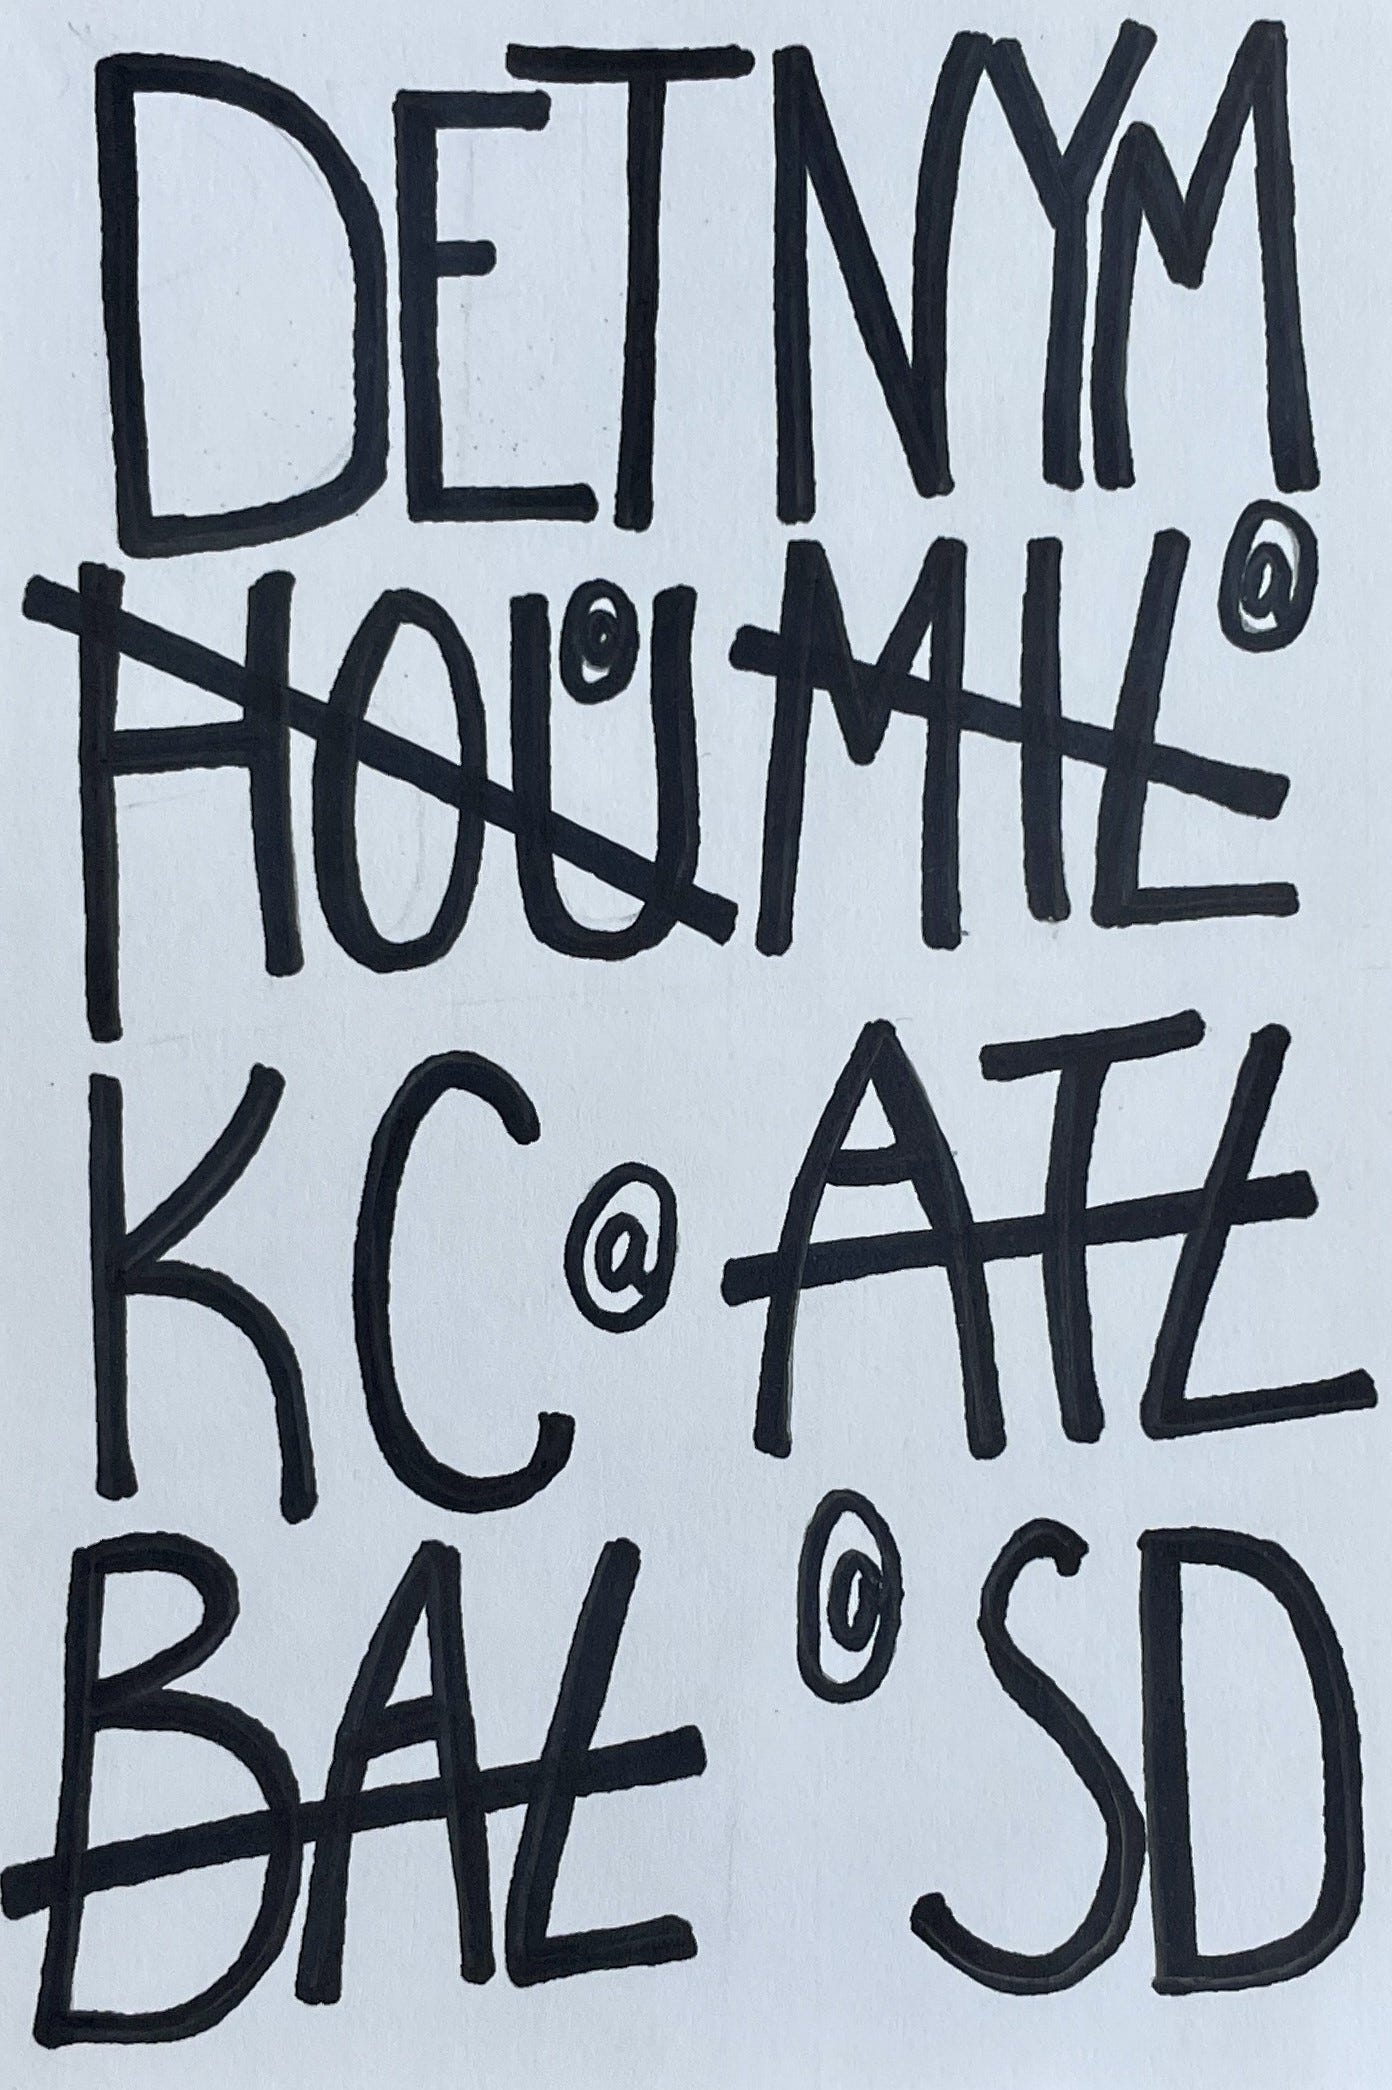 DET NYM
HOU @ MIL @
KC @ ATL
BAL @ SD